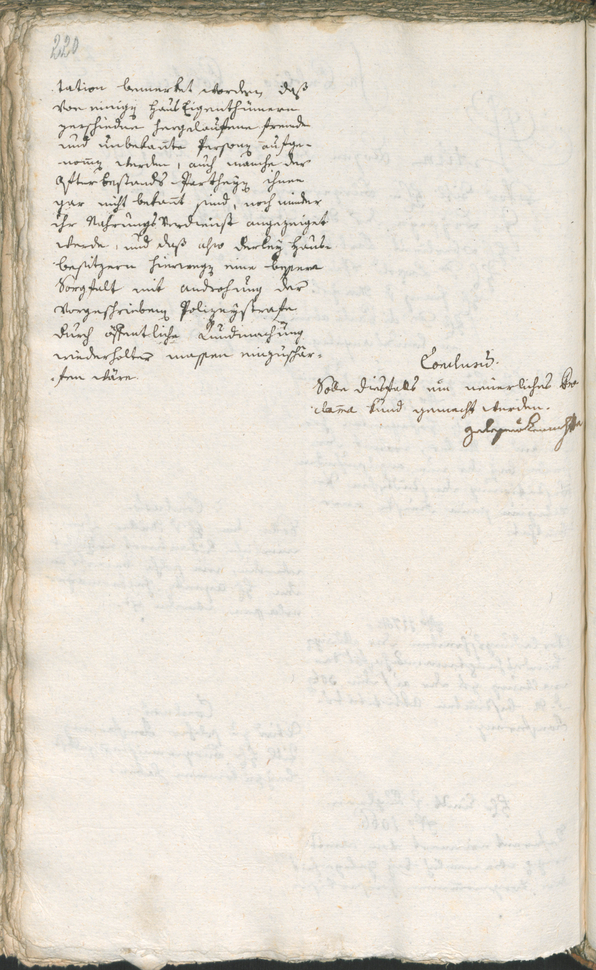 220
tation bemerket worden, daß
von einigen Haus Eigenthümern
verschiedene hergelaufene fremde
und unbekañte Personen aufge-
nom̃en werden, auch manche der
Afterbestands-Partheyen ihnen
gar nicht bekant sind, noch minder
ihr Nahrungs Verdienst angezeiget
werde, und daß also derley Haus-
besitzern hierwegen eine bessere
Sorgfalt mit androhung der
Vorgeschriebenen Polizeystrafe
durch öffentliche Kundmachung
wiederholter massen einzuschär-
fen wäre.
Conclusum.
Solle diesfalls ein neuerliches Pro-
clama kund gemacht werden.